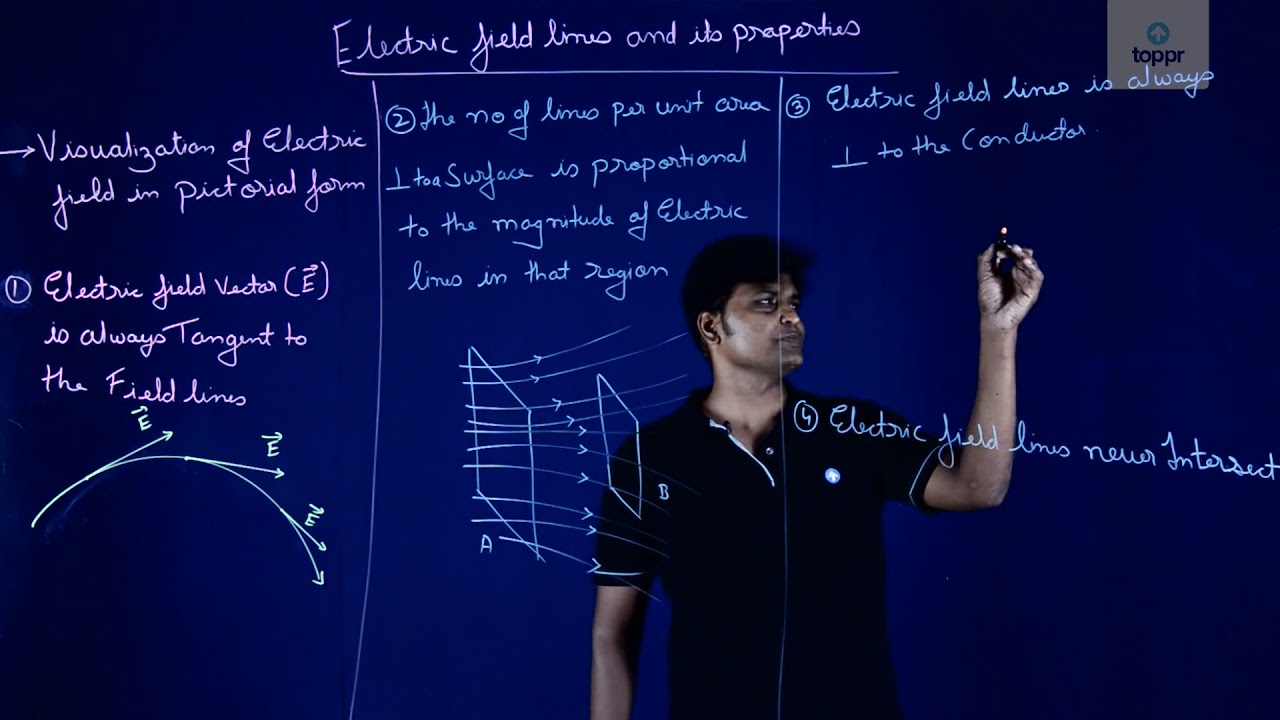 Electric field lines and its properties
toppr
→ Visualization of Electric
field in Pictorial form
① Electric field Vector (E⃗)
is always Tangent to
the Field lines
E⃗
E⃗
E⃗
② The no of lines per unit area
⊥ to a Surface is proportional
to the magnitude of Electric
lines in that region
A
B
③ Electric field lines is always
⊥ to the Conductor.
④ Electric field lines never Intersect